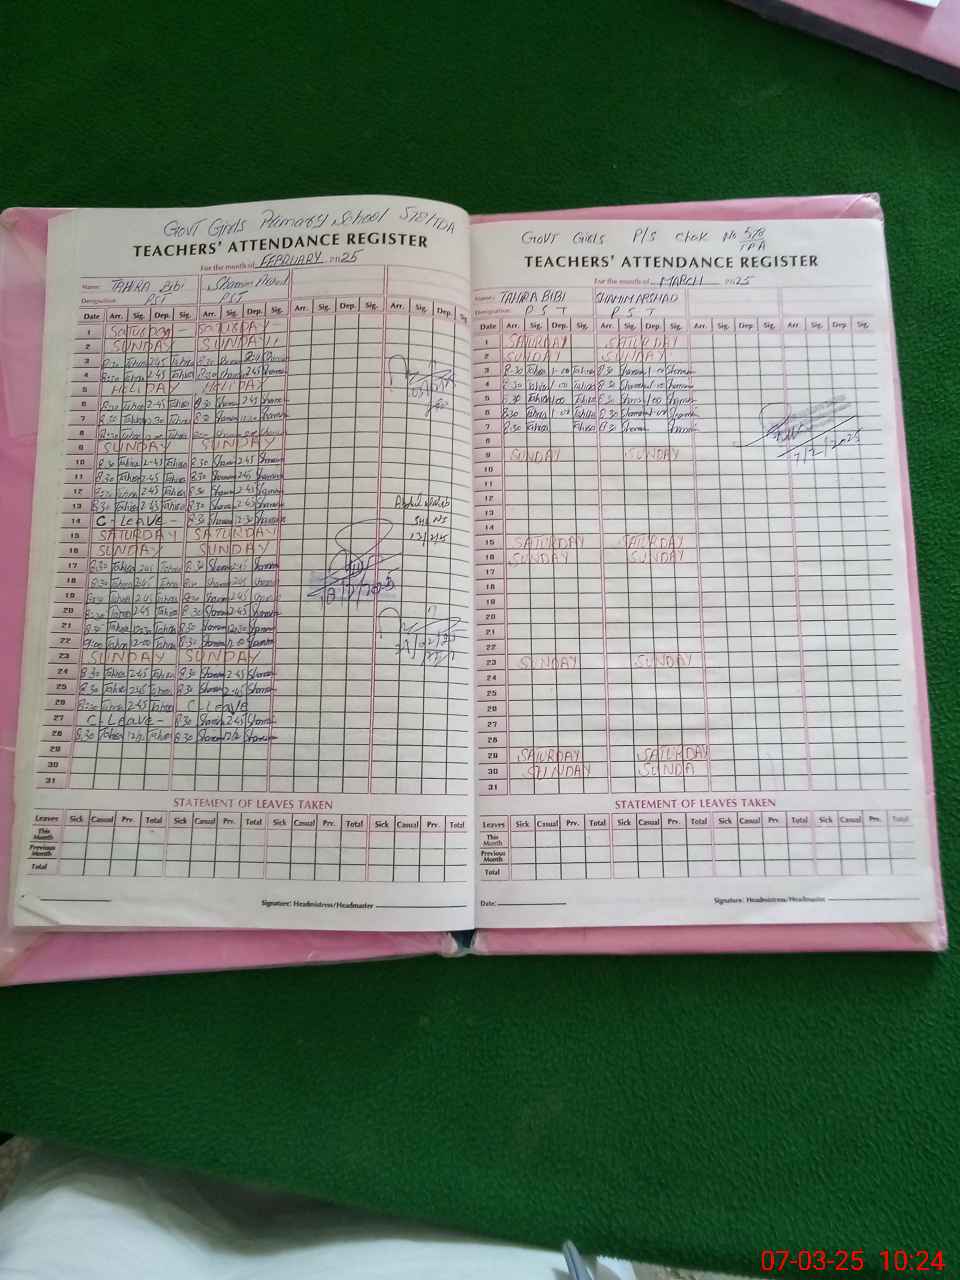 Govt Girls Primary School 578/TDA
TEACHERS' ATTENDANCE REGISTER
For the month of FEBRUARY 2025
Name: TAHIRA BiBi Shamim Arshad
Designation PST PST
Date Arr. Sig. Dep. Sig. Arr. Sig. Dep. Sig. Arr. Sig. Dep. Sig. Arr. Sig. Dep. Sig
1 SATURDAY - SATURDAY -
2 SUNDAY SUNDAY
3 8:30 Tahira 2:45 Tahira 8:30
4 8:30 Tahira 2:45 Tahira 8:30 2:45
5 HOLIDAY HOLIDAY
6 8:30 Tahira 2:45 Tahira 8:30 Shamim 2:45 Shamim
7 8:30 Tahira Tahira 8:30 Shamim Shamim
8 8:30 Tahira Tahira
9 SUNDAY SUNDAY
10 8:30 Tahira 2-45 Tahira 8:30 Shamim 2:45 Shamim
11 8:30 Tahira 2:45 Tahira 8:30 Shamim 2:45 Shamim
12 8:30 Tahira 2:45 Tahira 8:30 Shamim 2:45 Shamim
13 8:30 Tahira 2:45 Tahira 8:30 Shamim 2:45 Shamim
14 C-Leave - 8:30 Shamim 12:30 Shamim
13/2/25
15 SATURDAY SATURDAY
16 SUNDAY SUNDAY
17 8:30 Tahira 2:45 Tahira 8:30 Shamim 2:45 Shamim
18 8:30 Tahira 2:45 Tahira Shamim 2:45 Shamim
18/2/2025
19 8:30 Tahira 2:45 Tahira 8:30 Shamim 2:45
20 8:30 Tahira 2:45 Tahira 8:30 Shamim 2:45 Shamim
21 8:30 Tahira 12:30 Tahira 8:30 Shamim 12:30 Shamim
22 9:00 Tahira 12:00 Tahira 8:30 Shamim 12:00 Shamim
23 SUNDAY SUNDAY
24 8:30 Tahira 2:45 Tahira 8:30 Shamim 2:45 Shamim
25 8:30 Tahira 2:45 Tahira 8:30 Shamim 2:45 Shamim
26 8:30 Tahira 2:45 Tahira C-Leave
27 C-Leave - 8:30 Shamim 2:45 Shamim
28 8:30 Tahira Tahira 8:30 Shamim Shamim
29
30
31
STATEMENT OF LEAVES TAKEN
Leaves Sick Casual Prv. Total Sick Casual Prv. Total Sick Casual Prv. Total Sick Casual Prv. Total
This Month
Previous Month
Total
Signature: Headmistress/Headmaster
GOVT GIRLS P/S Chak No 578/TDA
TEACHERS' ATTENDANCE REGISTER
For the month of MARCH 2025
Name: TAHIRA BIBI SHAMIM ARSHAD
Designation: P S T P S T
Date Arr. Sig. Dep. Sig. Arr. Sig. Dep Sig. Arr. Sig Dep Sig. Arr. Sig. Dep. Sig.
1 SATURDAY SATURDAY
2 SUNDAY SUNDAY
3 8-30 Tahira 1-00 Tahira 8:30 Shamim 1-00 Shamim
4 8-30 Tahira 1-00 Tahira 8:30 Shamim 1-00 Shamim
5 8-30 Tahira 1:00 Tahira 8:30 Shamim 1:00 Shamim
6 8:30 Tahira 1-00 Tahira 8:30 Shamim 1:00 Shamim
7 8:30 Tahira Tahira 8:30 Shamim Shamim
8
9 SUNDAY SUNDAY
10
11
12
13
14
15 SATURDAY SATURDAY
16 SUNDAY SUNDAY
17
18
19
20
21
22
23 SUNDAY SUNDAY
24
25
26
27
28
29 SATURDAY SATURDAY
30 SUNDAY SUNDA
31
STATEMENT OF LEAVES TAKEN
Leaves Sick Casual Prv. Total Sick Casual Prv. Total Sick Casual Prv. Total Sick Casual Prv. Total
This Month
Previous Month
Total
Date: Signature: Headmistress/Headmaster
07-03-25 10:24